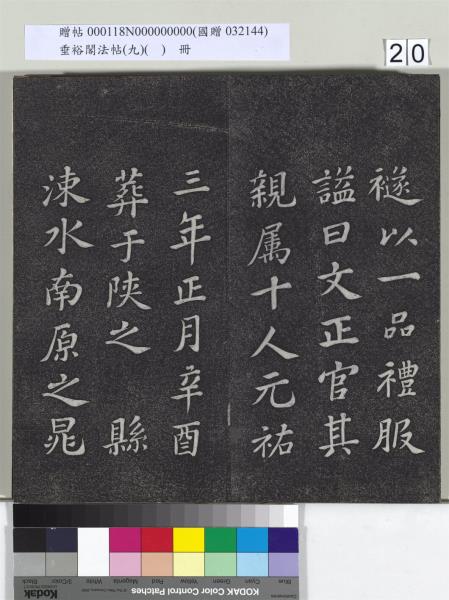 贈帖 000118N000000000(國贈 032144)
垂裕閣法帖(九)( ) 冊
20
襚以一品禮服
謚曰文正官其
親属十人元祐
三年正月辛酉
葬于陝之 縣
涑水南原之晁
Blue Cyan Green Yellow Red Magenta White 3/Color Black
Kodak KODAK Color Control Patches